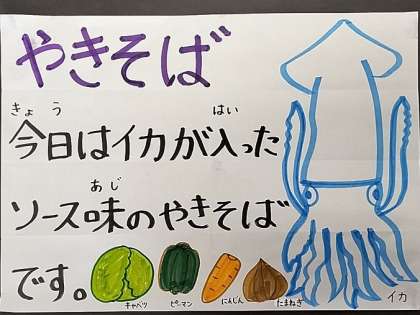 やきそば
きょう はい
今日はイカが入った
あじ
ソース味のやきそば
です。
キャベツ ピーマン にんじん たまねぎ
イカ